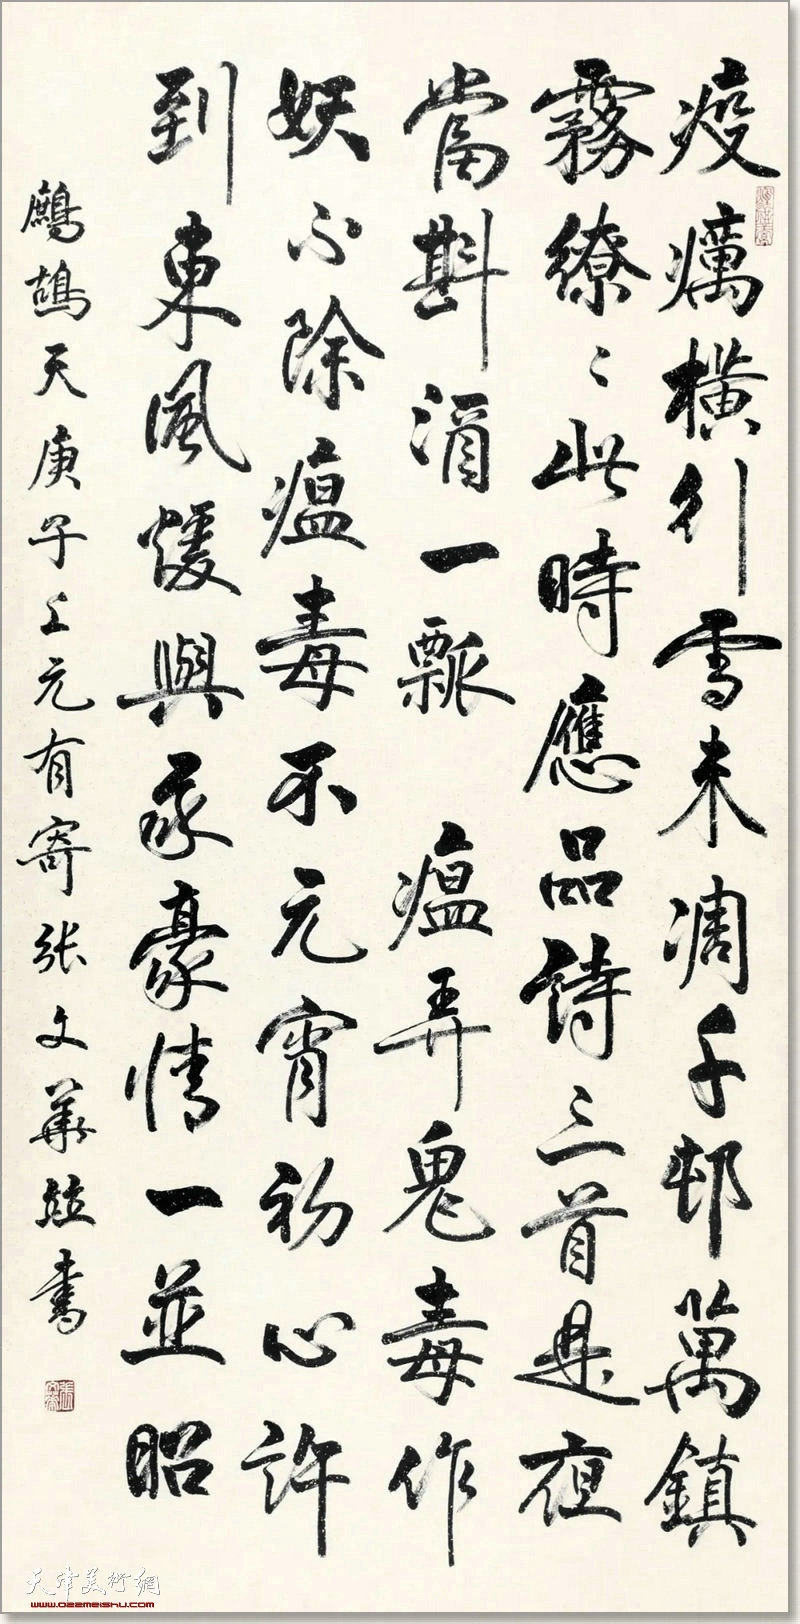 疫癘橫行雪未凋千邨萬鎮
霧繚〻此時應品詩三首是夜
當斟酒一瓢 瘟弄鬼毒作
妖不除瘟毒不元宵初心許
到東風煖與我豪情一並昭
鷓鴣天庚子上元有寄张文華竝書
天津美術網
www.022meishu.com